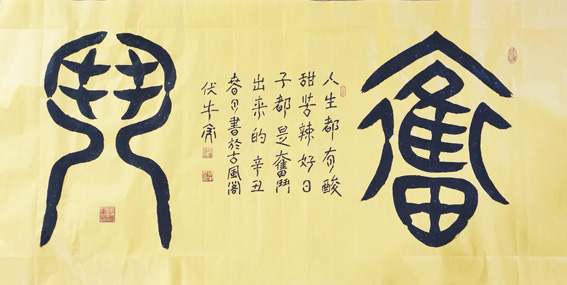 奮
人生都有酸
甜苦辣好日
子都是奮鬥
出来的辛丑
春月書於古風閣
伏牛
鬥